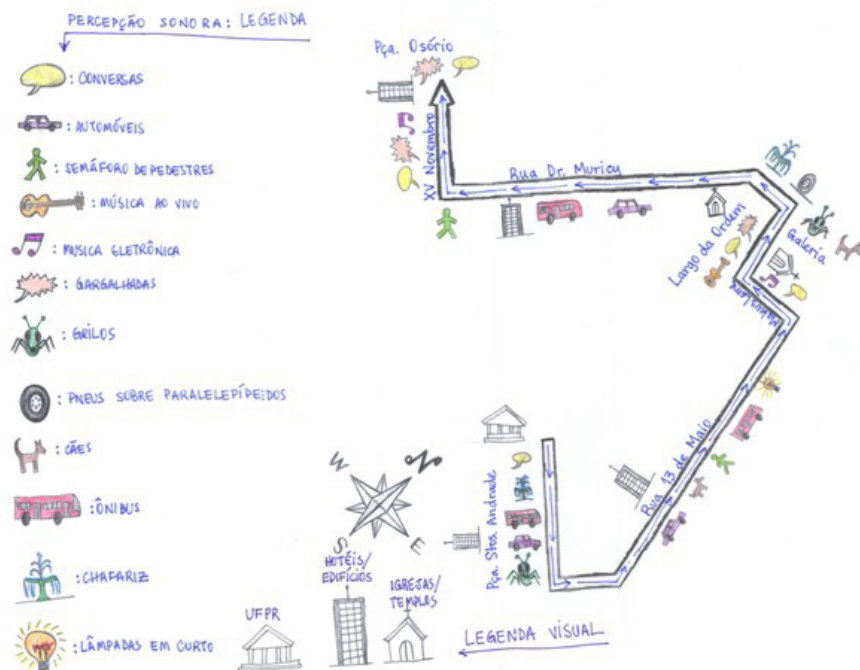 PERCEPÇÃO SONORA: LEGENDA
: CONVERSAS
: AUTOMÓVEIS
: SEMÁFORO DE PEDESTRES
: MÚSICA AO VIVO
: MUSICA ELETRÔNICA
: GARGALHADAS
: GRILOS
: PNEUS SOBRE PARALELEPÍPEDOS
: CÃES
: ÔNIBUS
: CHAFARIZ
: LÂMPADAS EM CURTO
Pça. Osório
XV Novembro
Rua Dr. Muricy
Largo da Ordem
Galeria
Rua 13 de Maio
Pça. Stos. Andrade
W
N
S
E
UFPR
HOTÉIS/
EDIFÍCIOS
IGREJAS/
TEMPLOS
LEGENDA VISUAL